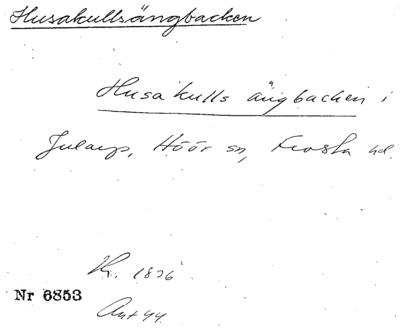 Husakullsängbacken
Husakulls ängbacken i
Julaup, Höör sn, Frosta hd.
Kr. 1836
Nr 6853
Ant 44.